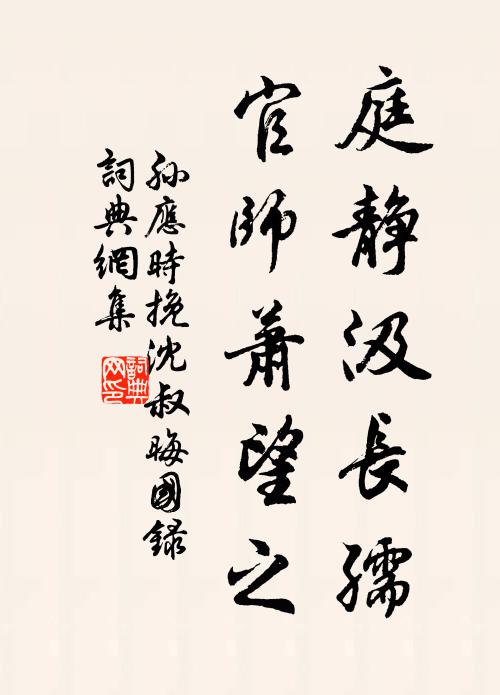 庭静汲長孺
官師蕭望之
孫應時挽沈叔晦國錄
詞典網集
詞典网印